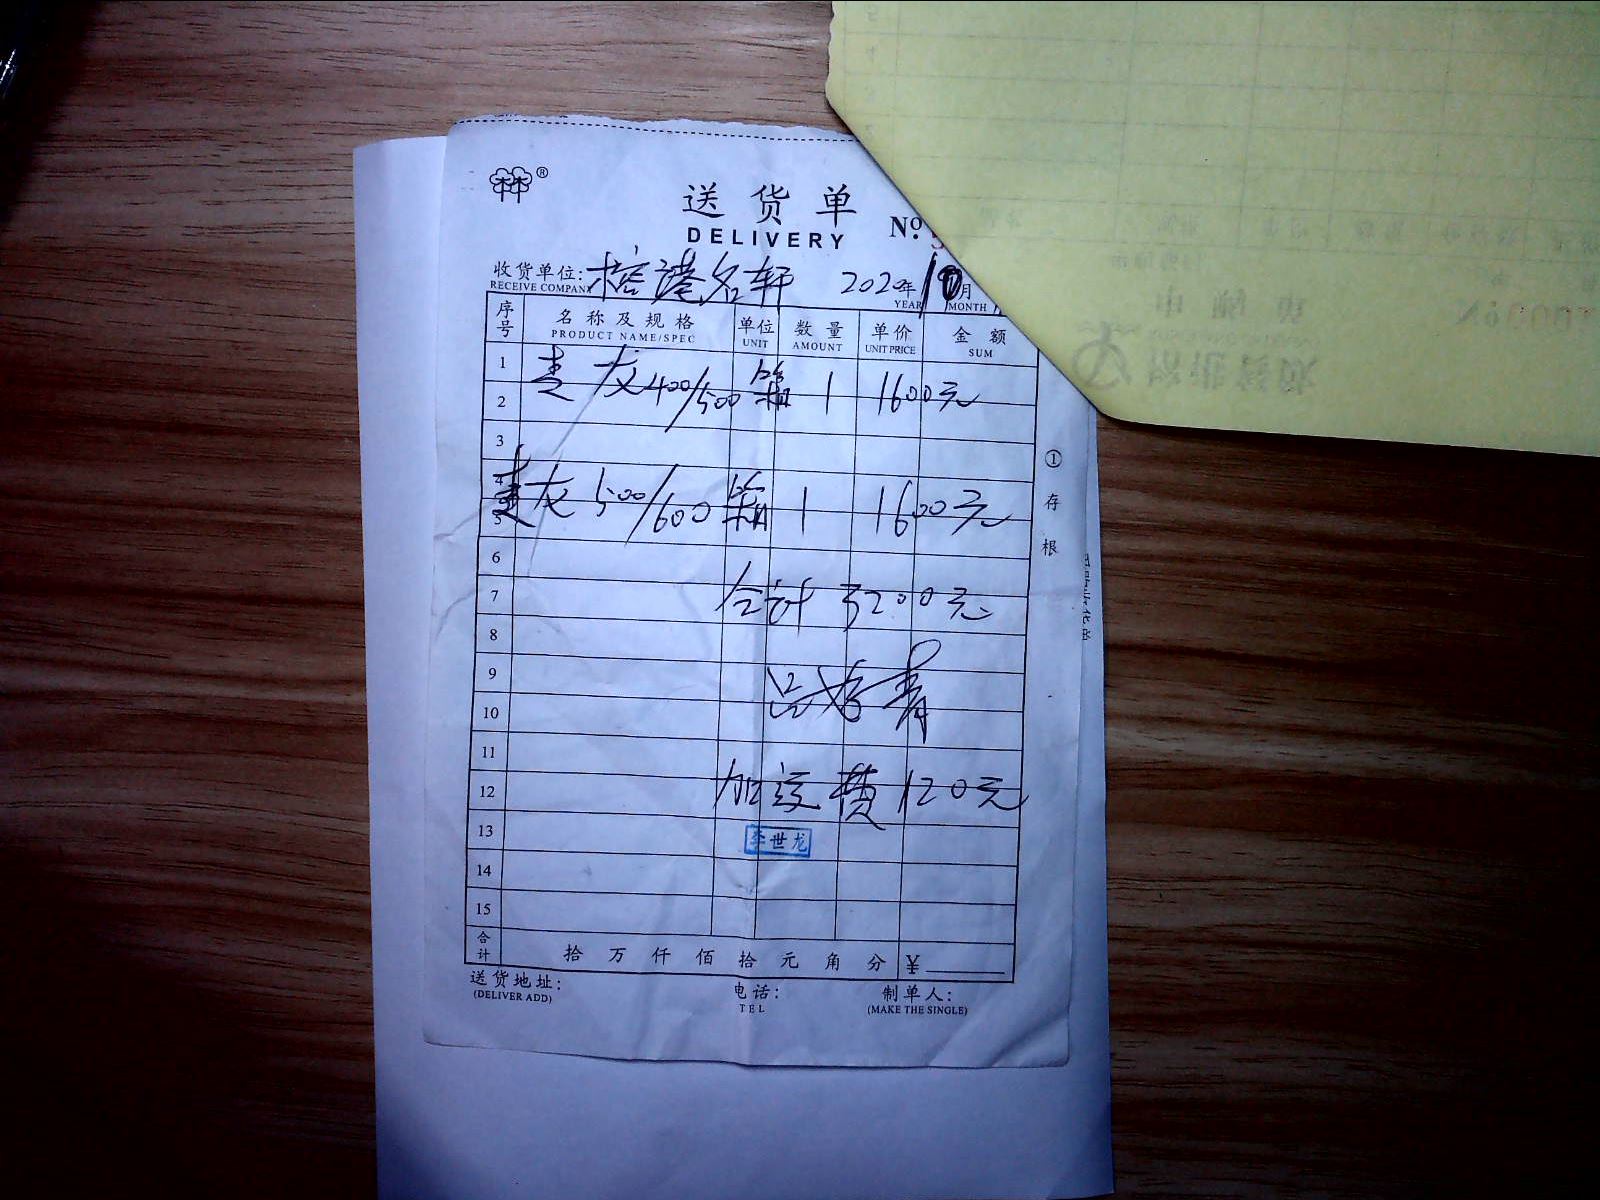 ®
送货单
DELIVERY № 
收货单位: 榕港名轩 2020年10月
RECEIVE COMPANY YEAR MONTH
序号 名称及规格 单位 数量 单价 金额
PRODUCT NAME/SPEC UNIT AMOUNT UNIT PRICE SUM
1 青龙 400/500 箱 1 1600元
2
3
4 青龙 500/600 箱 1 1600元
5
6
7 合计 3200元
8
9
10
11
12 加运费 120元
13 李世龙
14
15
合计 拾 万 仟 佰 拾 元 角 分 ¥
送货地址: 电话: 制单人:
(DELIVER ADD) TEL (MAKE THE SINGLE)
① 存根